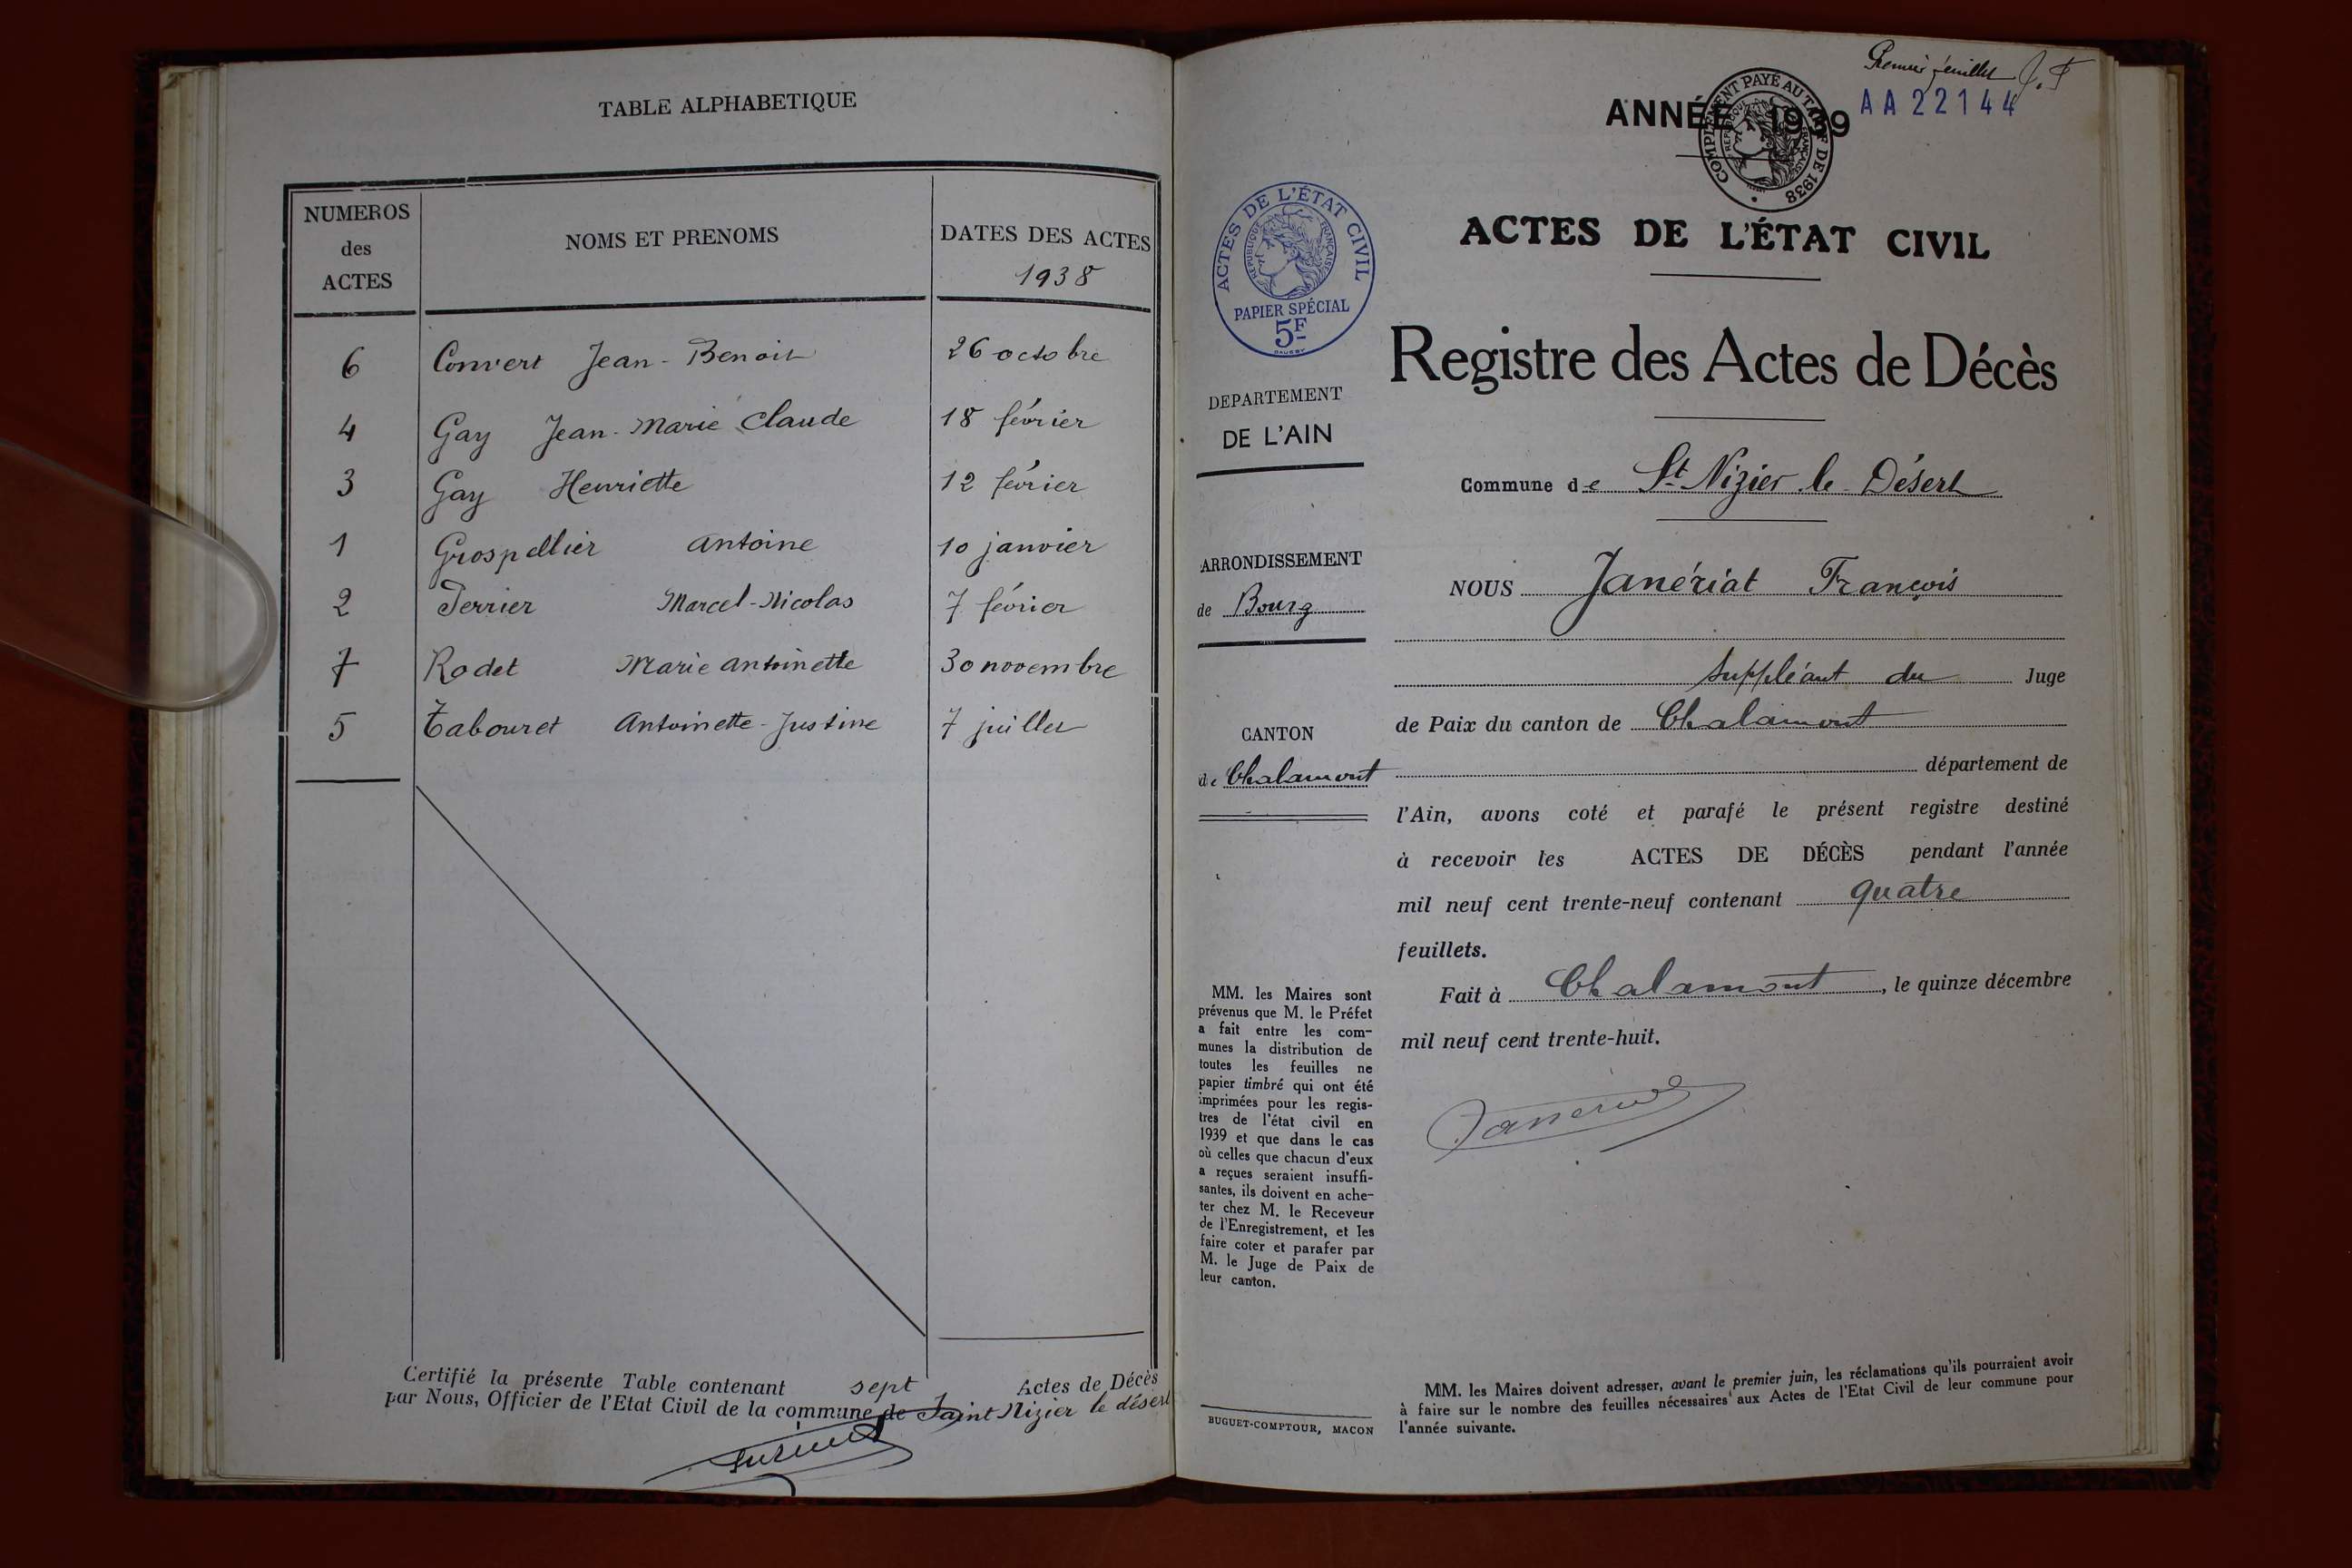 TABLE ALPHABETIQUE
NUMEROS des ACTES
NOMS ET PRENOMS
DATES DES ACTES
1938
6 Convert Jean-Benoit 26 octobre
4 Gay Jean-Marie Claude 18 février
3 Gay Henriette 12 février
1 Grospellier Antoine 10 janvier
2 Perrier Marcel-Nicolas 7 février
7 Rodet Marie Antoinette 30 novembre
5 Tabouret Antoinette-Justine 7 juillet
Certifié la présente Table contenant sept Actes de Décès
par Nous, Officier de l'Etat Civil de la commune de Saint Nizier le désert
Premier feuillet J.F
AA 22144
ANNÉE 1939
COMPLEMENT PAYÉ AU TARIF DE 1938
REPUBLIQUE FRANÇAISE
ACTES DE L'ÉTAT CIVIL
REPUBLIQUE FRANÇAISE
PAPIER SPÉCIAL
5F
DEPARTEMENT
DE L'AIN
ARRONDISSEMENT
de Bourg
CANTON
de Chalamont
MM. les Maires sont
prévenus que M. le Préfet
a fait entre les com-
munes la distribution de
toutes les feuilles ne
papier timbré qui ont été
imprimées pour les regis-
tres de l'état civil en
1939 et que dans le cas
où celles que chacun d'eux
a reçues seraient insuffi-
santes, ils doivent en ache-
ter chez M. le Receveur
de l'Enregistrement, et les
faire coter et parafer par
M. le Juge de Paix de
leur canton.
BUGUET-COMPTOUR, MACON
ACTES DE L'ÉTAT CIVIL
Registre des Actes de Décès
Commune de St Nizier le Désert
NOUS Janériat François
suppléant du Juge
de Paix du canton de Chalamont
département de
l'Ain, avons coté et parafé le présent registre destiné
à recevoir les ACTES DE DÉCÈS pendant l'année
mil neuf cent trente-neuf contenant quatre
feuillets.
Fait à Chalamont, le quinze décembre
mil neuf cent trente-huit.
MM. les Maires doivent adresser, avant le premier juin, les réclamations qu'ils pourraient avoir
à faire sur le nombre des feuilles nécessaires aux Actes de l'Etat Civil de leur commune pour
l'année suivante.